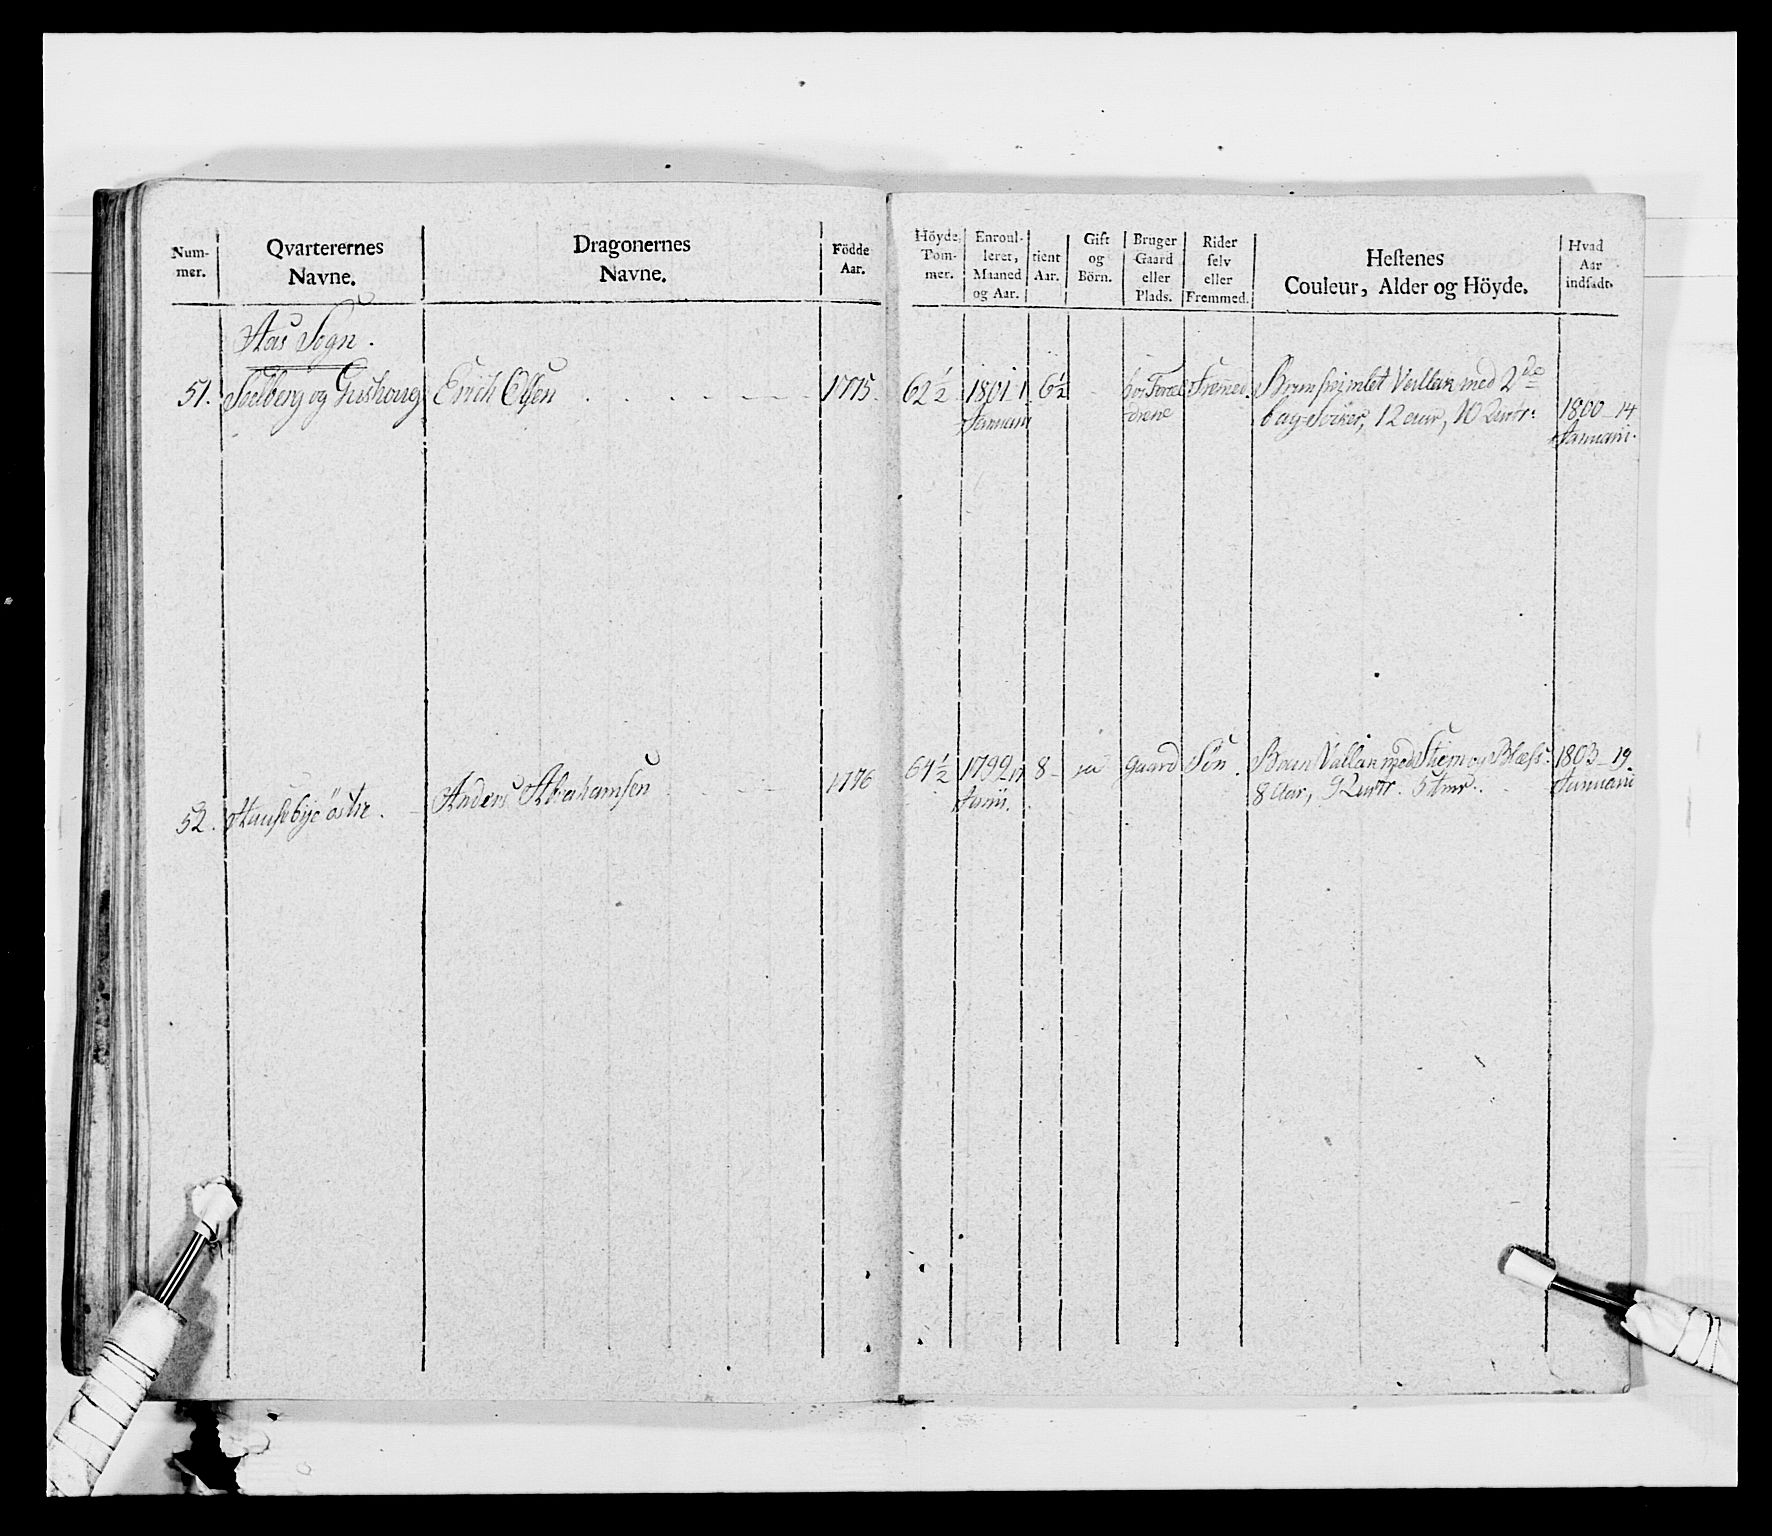 Num-
mer.
Qvarterernes
Navne.
Dragonernes
Navne.
Födde
Aar.
Höyde,
Tom-
mer.
Enroul-
leret,
Maaned
og Aar.
tient
Aar.
Gift
og
Börn.
Bruger
Gaard
eller
Plads.
Rider
selv
eller
Fremmed.
Hestenes
Couleur, Alder og Höyde.
Hvad
Aar
indsadt.
Aas Sogn.
51. Soelberg og Erich Olsen 1775. 62½ 1801 1 6½ hos Foræl Fremed
Januarii drene
Brun skimlet Vallak med 2de
bag Sokker, 12 aar, 10 Qvartr:
1800 14
Januarii.
52. Huusebye östre. Anders Abrahamsen 1776 64½ 1792 8 Gaard Søn.
Junii.
Brun Vallak med Stiern og Blæss:
8 Aar, 9 Qvartr. 5 Tmr.
1803 19
Januarii